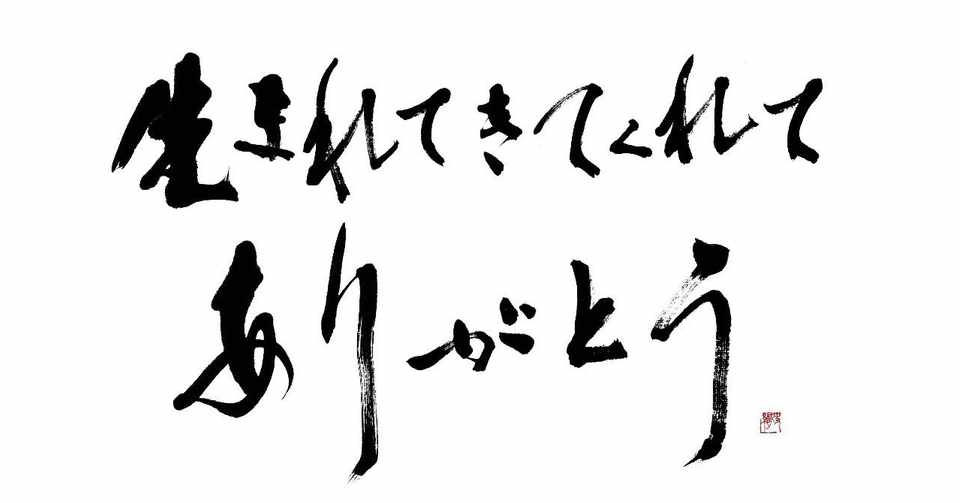 生まれてきてくれて
ありがとう